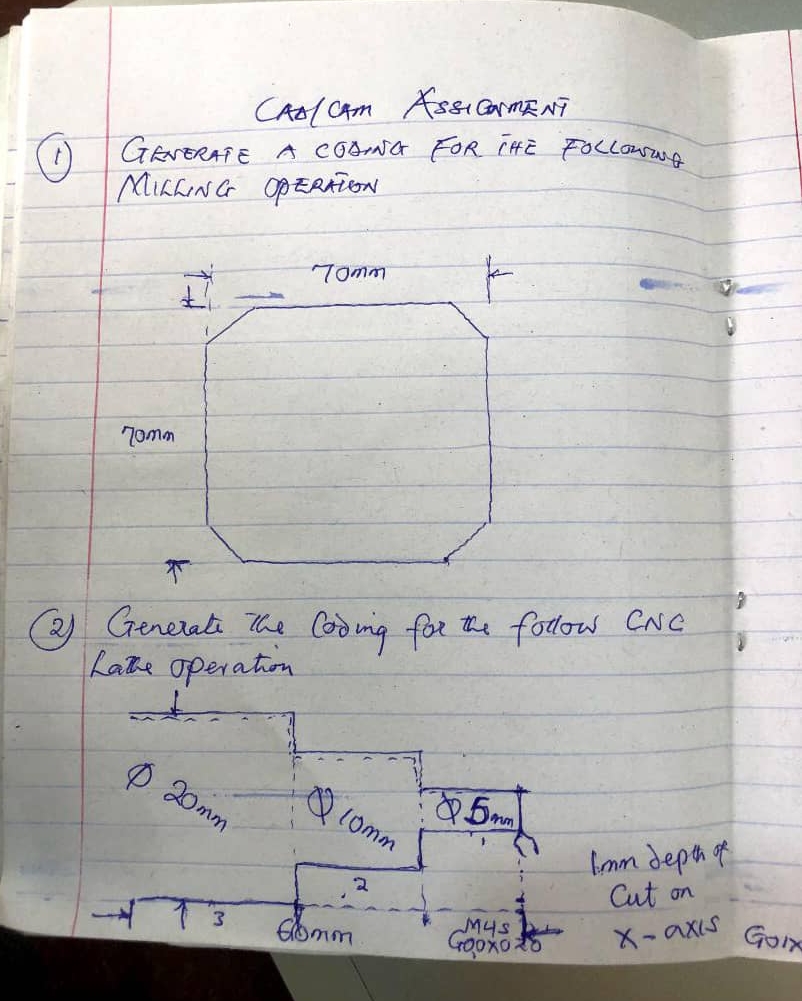 CAD/CAM ASSIGNMENT
① GENERATE A CODING FOR THE FOLLOWING
MILLING OPERATION
70mm
70mm
② Generate the Coding for the follow CNC
Lathe operation
Ø 20mm
Ø 10mm
Ø 5mm
1mm depth of
Cut on
X-axis G01X
2
3
60mm
M4S
G00X0Z0